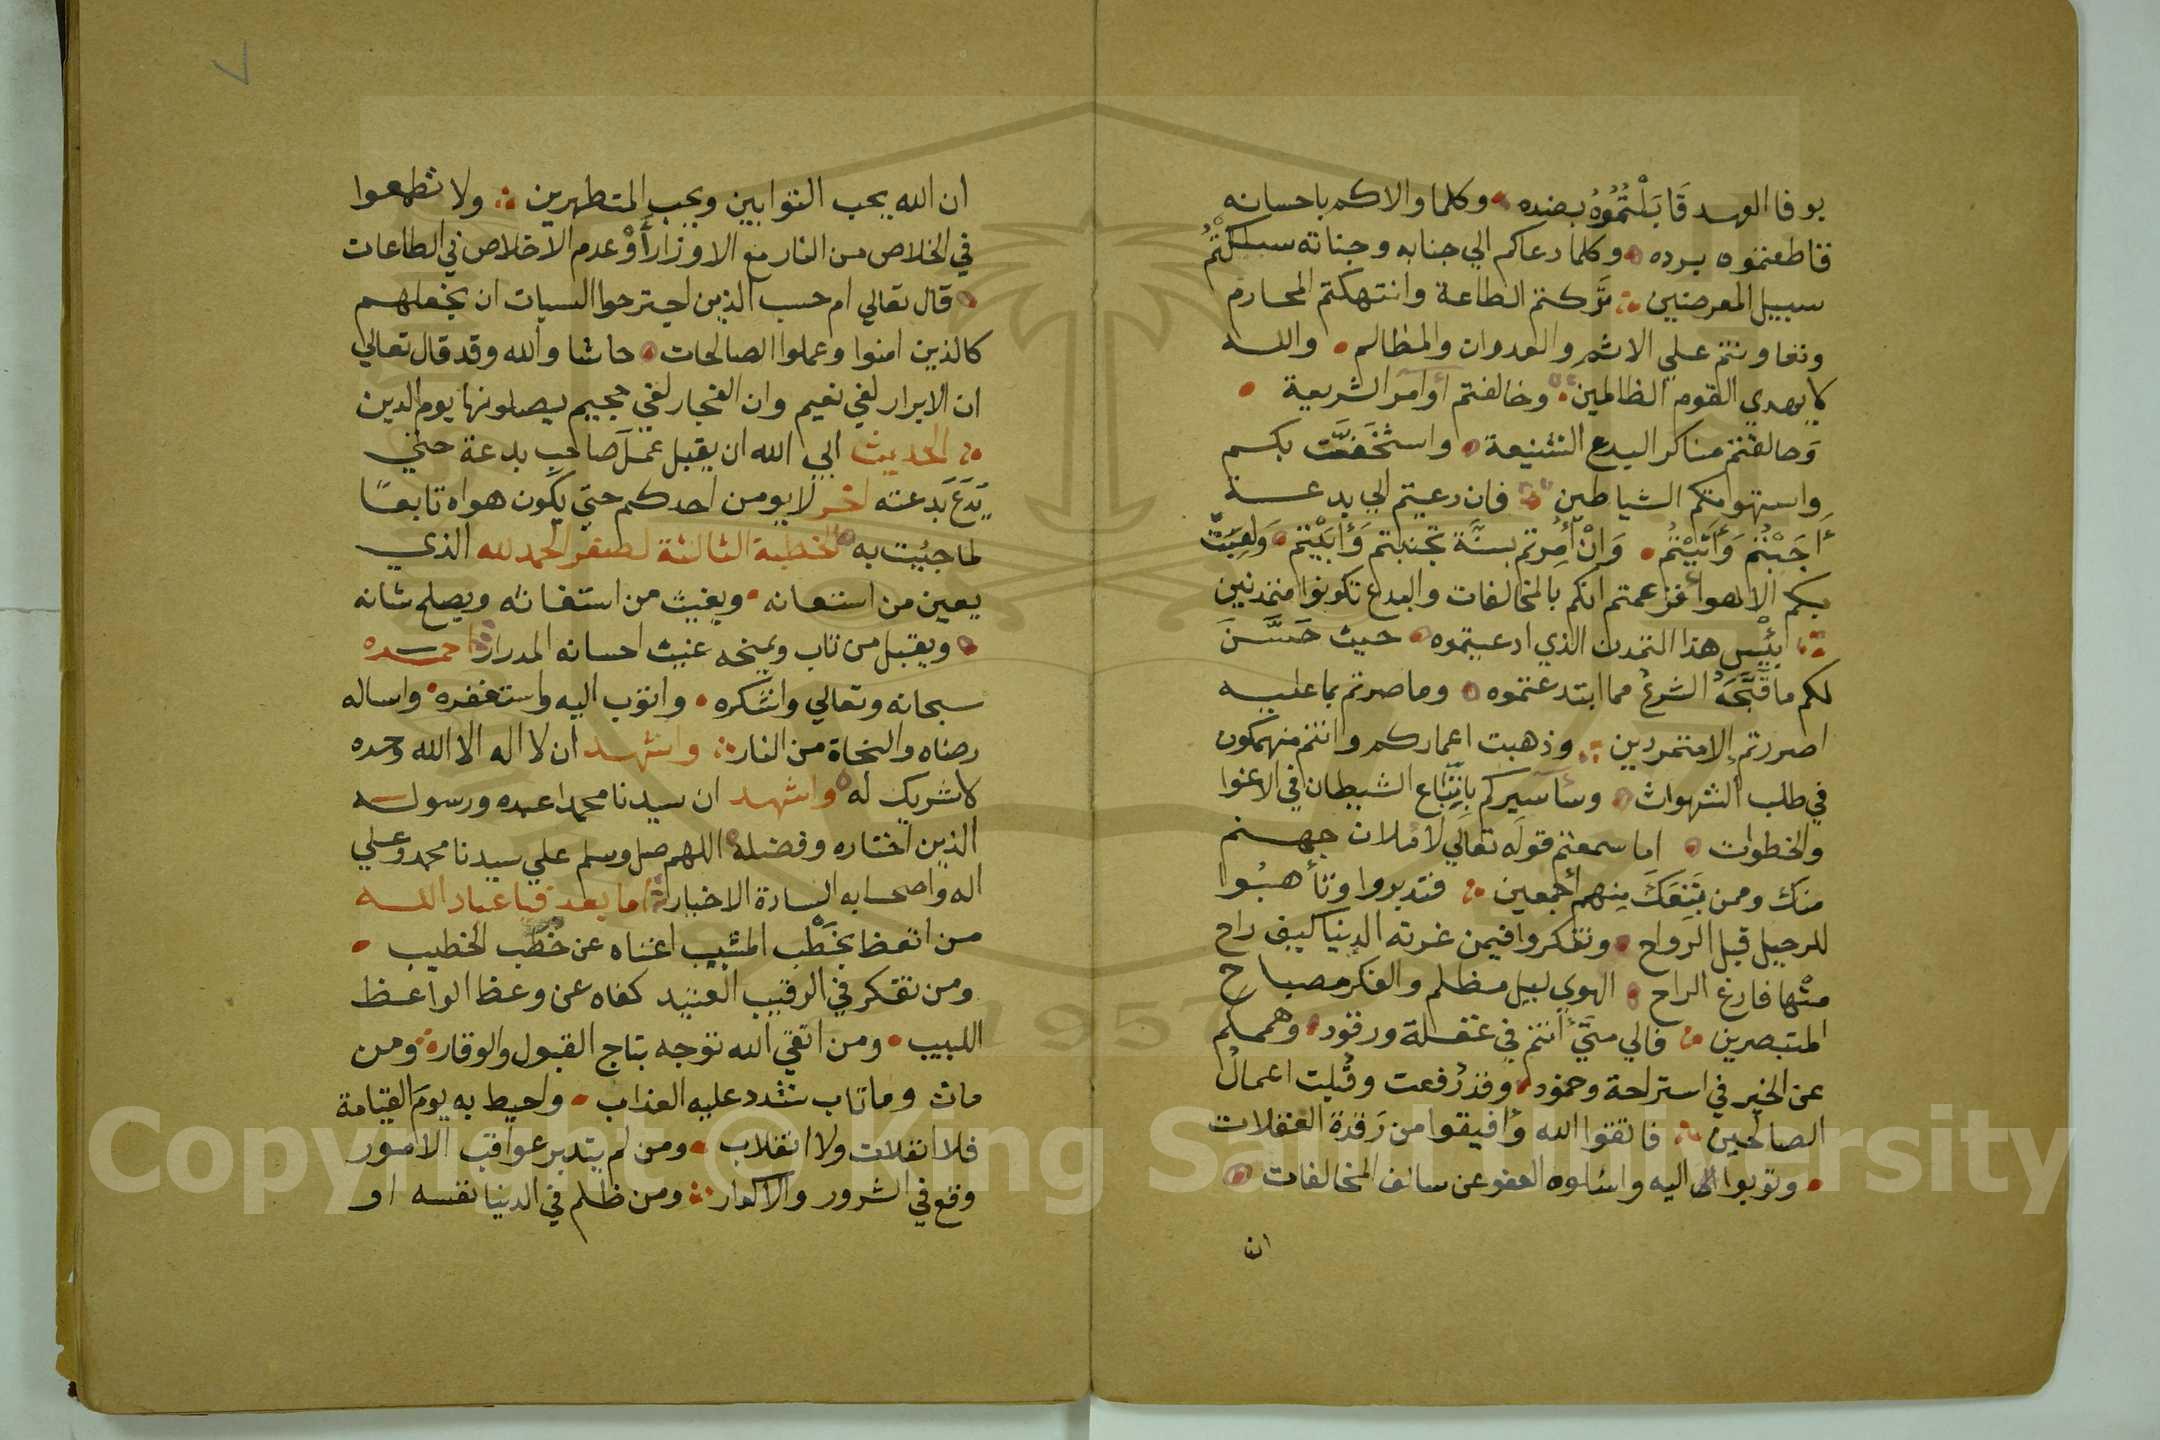 بوفا العهد قَابَلْتُمُوْهُ بضده وكلما والاكم باحسانه
قاطعتموه برده وكلما دعاكم الي جنابه وجناته سلكْتُمْ
سبيل المعرضين تركتم الطاعة وانتهكتم المحارم
وتعاونتم علي الاثم والعدوان والمظالم والله
لا يهدي القوم الظالمين وخالفتم أوامر الشريعة
وَحالفتم مناكر البدع الشنيعة واستْخَفَّت بكم
واستهوتكم الشياطين فان دعيتم الي بدعة
أَجَبْتُمْ وَأَتَيْتُمْ وَانْ أُمِرْتم بسنَّة تجنبتم وَأَبَيْتُم وَلَعِبَتْ
بكم الاهوا فزعمتم انكم بالمخالفات والبدع تكونوا متمدنين
ابئْس هذا التمدن الذي ادعيتموه حيث حَسَّنَ
لكم ما قَبَّحَهُ الشرعُ مما ابتدعتموه وما صرتم بما عليه
اصررتم إلا متمردين وذهبت اعماركم وانتم منهمكون
في طلب الشهوات وسأسيركم باتِّبَاع الشيطان في الاغوا
والخطوات اما سمعتم قوله تعالي لأملان جهنم
منك وممن تَبِعَكَ منهم أجمعين فتدبروا وتأهبُوا
للرحيل قبل الرواح وتفكروا فيمن غرته الدنيا كيف راح
منْها فارغ الراح الهوي ليل مظلم والفكر مصباح
المتبصرين فالي متيَّ أنتم في غفلة ورقود وهممكم
عن الخير في استراحة وخمود وقد رُفعت وقُبلت اعمالُ
الصالحين فاتقوا الله وأفيقوا من رَقدة الغفلات
وتوبوا الى اليه واسئلوه العفو عن سالف المخالفات
ان
٧
ان الله يحب التوابين ويحب المتطهرين ولا تطمعوا
في الخلاص من النار مع الاوزار أَوْ عدم الاخلاص في الطاعات
قال تعالي ام حسب الذين اجترحوا السيات ان نجعلهم
كالذين امنوا وعملوا الصالحات حاشا والله وقد قال تعالي
ان الابرار لفي نعيم وان الفجار لفي جحيم يصلونها يوم الدين
الحديث ابي الله ان يقبل عملَ صاحب بدعة حتي
يَدَعَ بَدعته اخر لا يومن احدكم حتي يكون هواه تابعًا
لما جيُت به الخطبة الثالثة لصفر الحمد لله الذي
يعين من استعانه ويغيث من استغاثه ويصلح شانه
ويقبل من تاب ويمنحه غيث احسانه المدرار احمده
سبحانه وتعالي واشكره واتوب اليه واستغفره واساله
رضاه والنجاة من النار واشهد ان لا اله الا الله وحده
لا شريك له واشهد ان سيدنا محمدا عبده ورسوله
الذين اختاره وفضله اللهم صل وسلم علي سيدنا محمد وعلي
اله واصحابه السادة الاخيار اما بعد فيا عباد الله
من اتعظ بخَطْب المشيب اغناه عن خُطَب الخطيب
ومن تفكر في الرقيب العتيد كفاه عن وعظ الواعظ
اللبيب ومن اتقي الله توجه بتاج القبول والوقار ومن
مات وما تاب شدد عليه العذاب واحيط به يومَ القيامة
فلا انفلات ولا انقلاب ومن لم يتدبر عواقب الامور
وقع في الشرور والاكدار ومن ظلم في الدنيا نفسه او
Copyright © King Saud University
1957